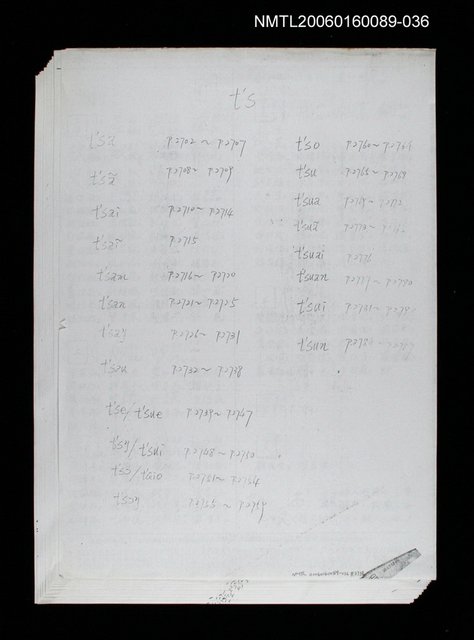 NMTL20060160089-036
t's
t'sa P2702～P2707
t'sã P2708～P2709
t'sai P2710～P2714
t'saĩ P2715
t'sam P2716～P2720
t'san P2721～P2725
t'saŋ P2726～P2731
t'sau P2732～P2738
t'se/t'sue P2739～P2747
t'sŋ/t'suĩ P2748～P2750
P2751～P2754
t'sɔŋ P2755～P2759
t'so P2760～P2764
t'su P2765～P2768
t'sua P2769～P2772
t'suã
t'suai P2776
t'suan P2777～P2780
t'sui P2781～
t'sun